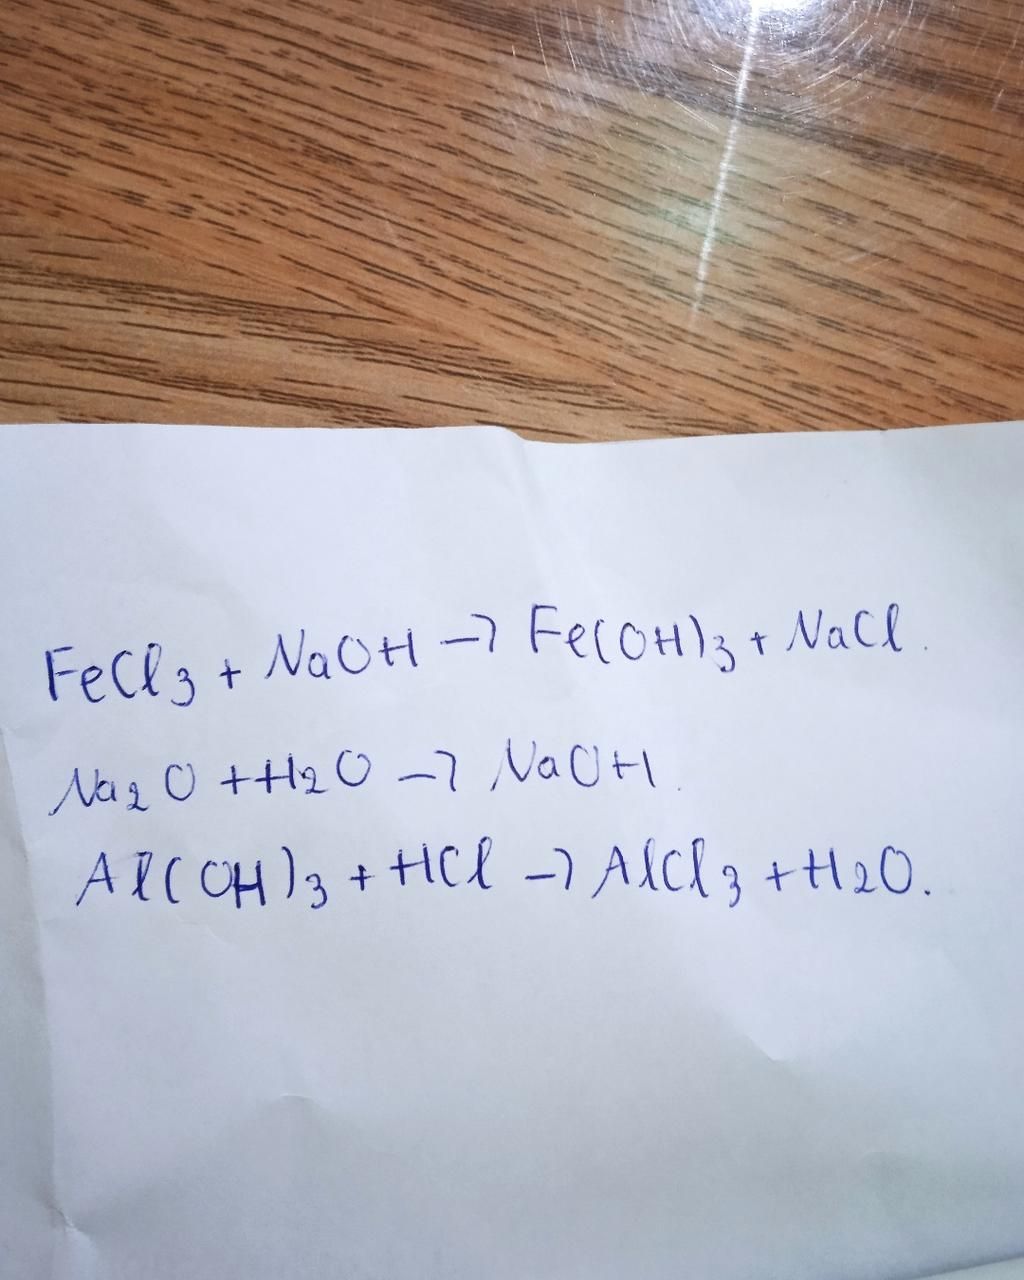 FeCl3 + NaOH → Fe(OH)3 + NaCl.
Na2O + H2O → NaOH.
Al(OH)3 + HCl → AlCl3 + H2O.